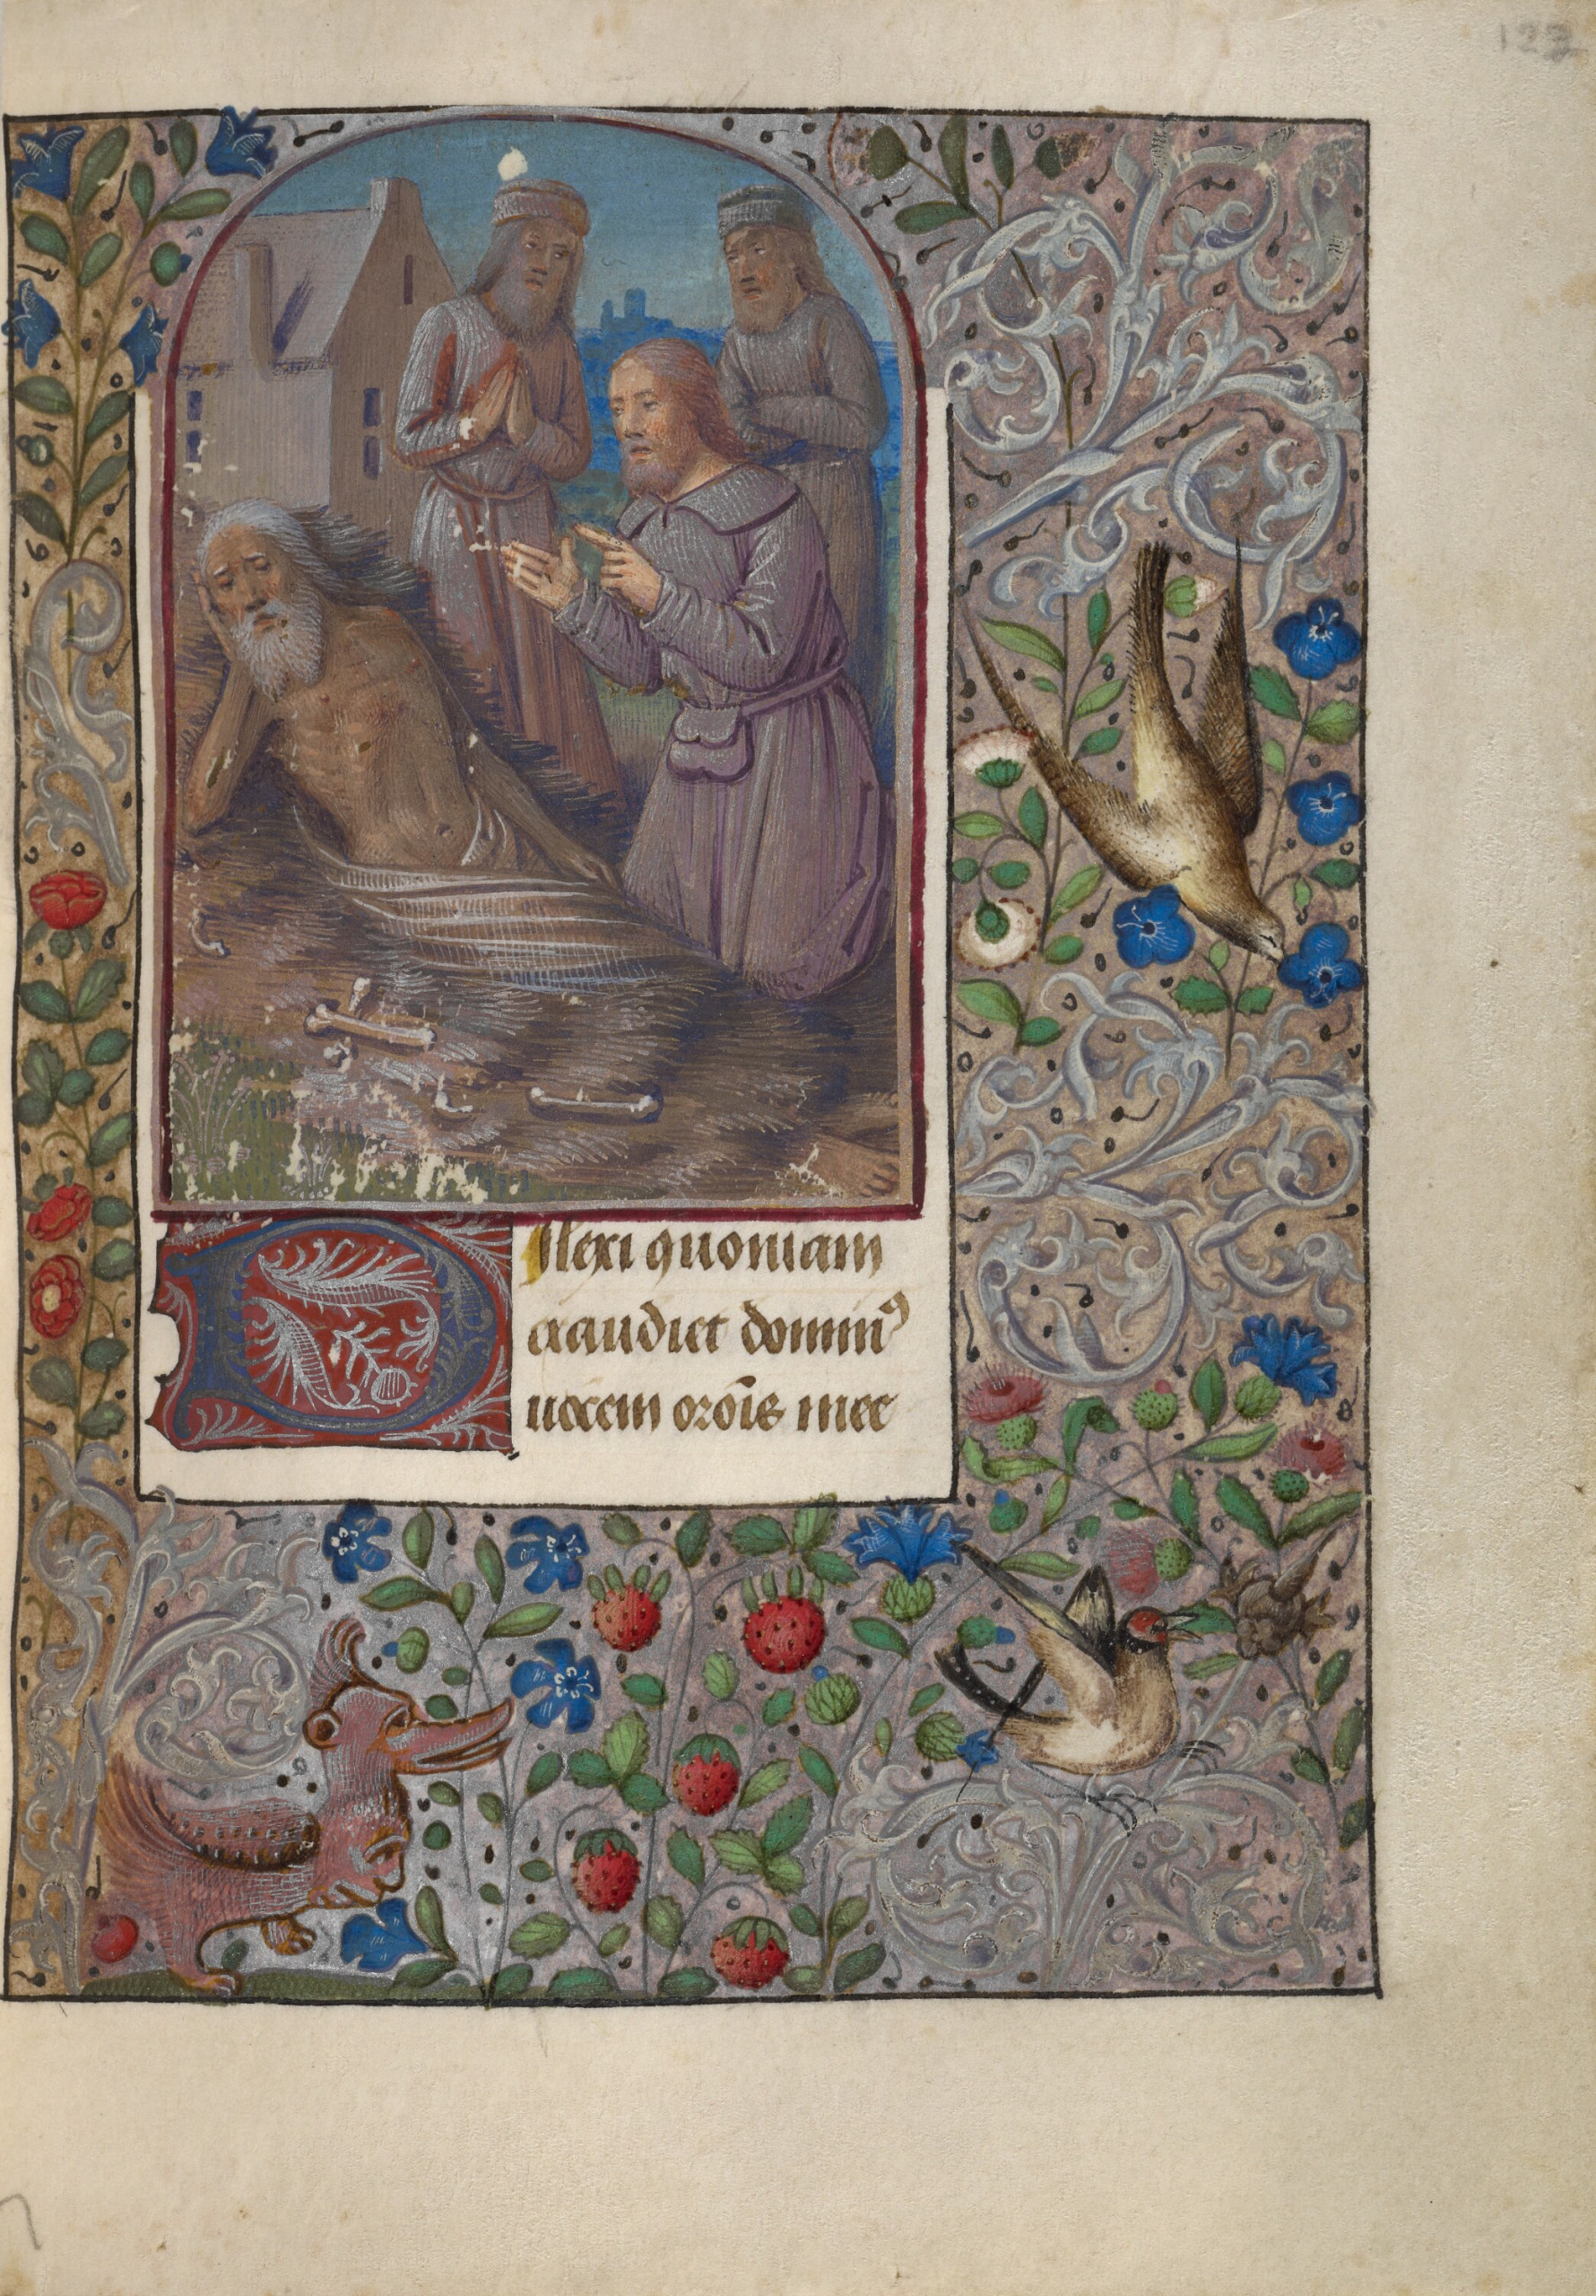 Dilexi quoniam
exaudiet dominꝰ
uocem orōis mee